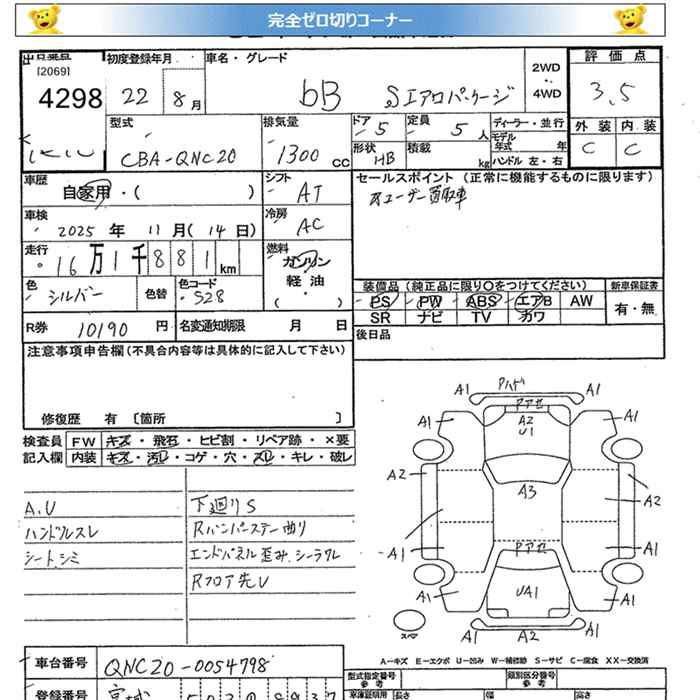 完全ゼロ切りコーナー
[2069]
4298
初度登録年月
22 8月
車名・グレード
bB Sエアロパッケージ
2WD
4WD
評価点
3.5
外装 内装
C C
型式
CBA-QNC20
排気量
1300 cc
ドア 5
定員 5 人
ディーラー・並行
形状 HB
積載 kg
モデル年式 年
ハンドル 左・右
車歴
自家用・( )
シフト
AT
セールスポイント(正常に機能するものに限ります)
車検
2025年 11月(14日)
冷房
AC
走行
16万1千881km
燃料
ガソリン
軽・油
( )
色
シルバー
色替
色コード
S28
装備品(純正品に限り○をつけてください)
新車保証書
PS PW ABS エアB AW
有・無
SR ナビ TV カワ
R券 10190 円
名変通知期限 月 日
後日品
注意事項申告欄(不具合内容等は具体的に記入して下さい)
修復歴 有 〔箇所 〕
検査員 FW キズ・飛石・ヒビ割・リペア跡・×要
記入欄 内装 キズ・汚レ・コゲ・穴・スレ・キレ・破レ
A.U
ハンドルスレ
シートシミ
下廻りS
Rバンパーステー曲り
エンドパネル歪み.シーラワレ
Rフロア先U
A1 A1
Pアセ
A1 A2 U1 A1
A2 A3 A2
A1 Pアセ A1
A1 UA1 A1
A1 A2 A1
スペア
A-キズ E-エクボ U-凹み W-補修跡 S-サビ C-腐食 XX-交換済
車台番号 QNC20-0054798
型式指定番号 参考
類別区分番号 参考
登録番号 宮城
長さ 幅 高さ